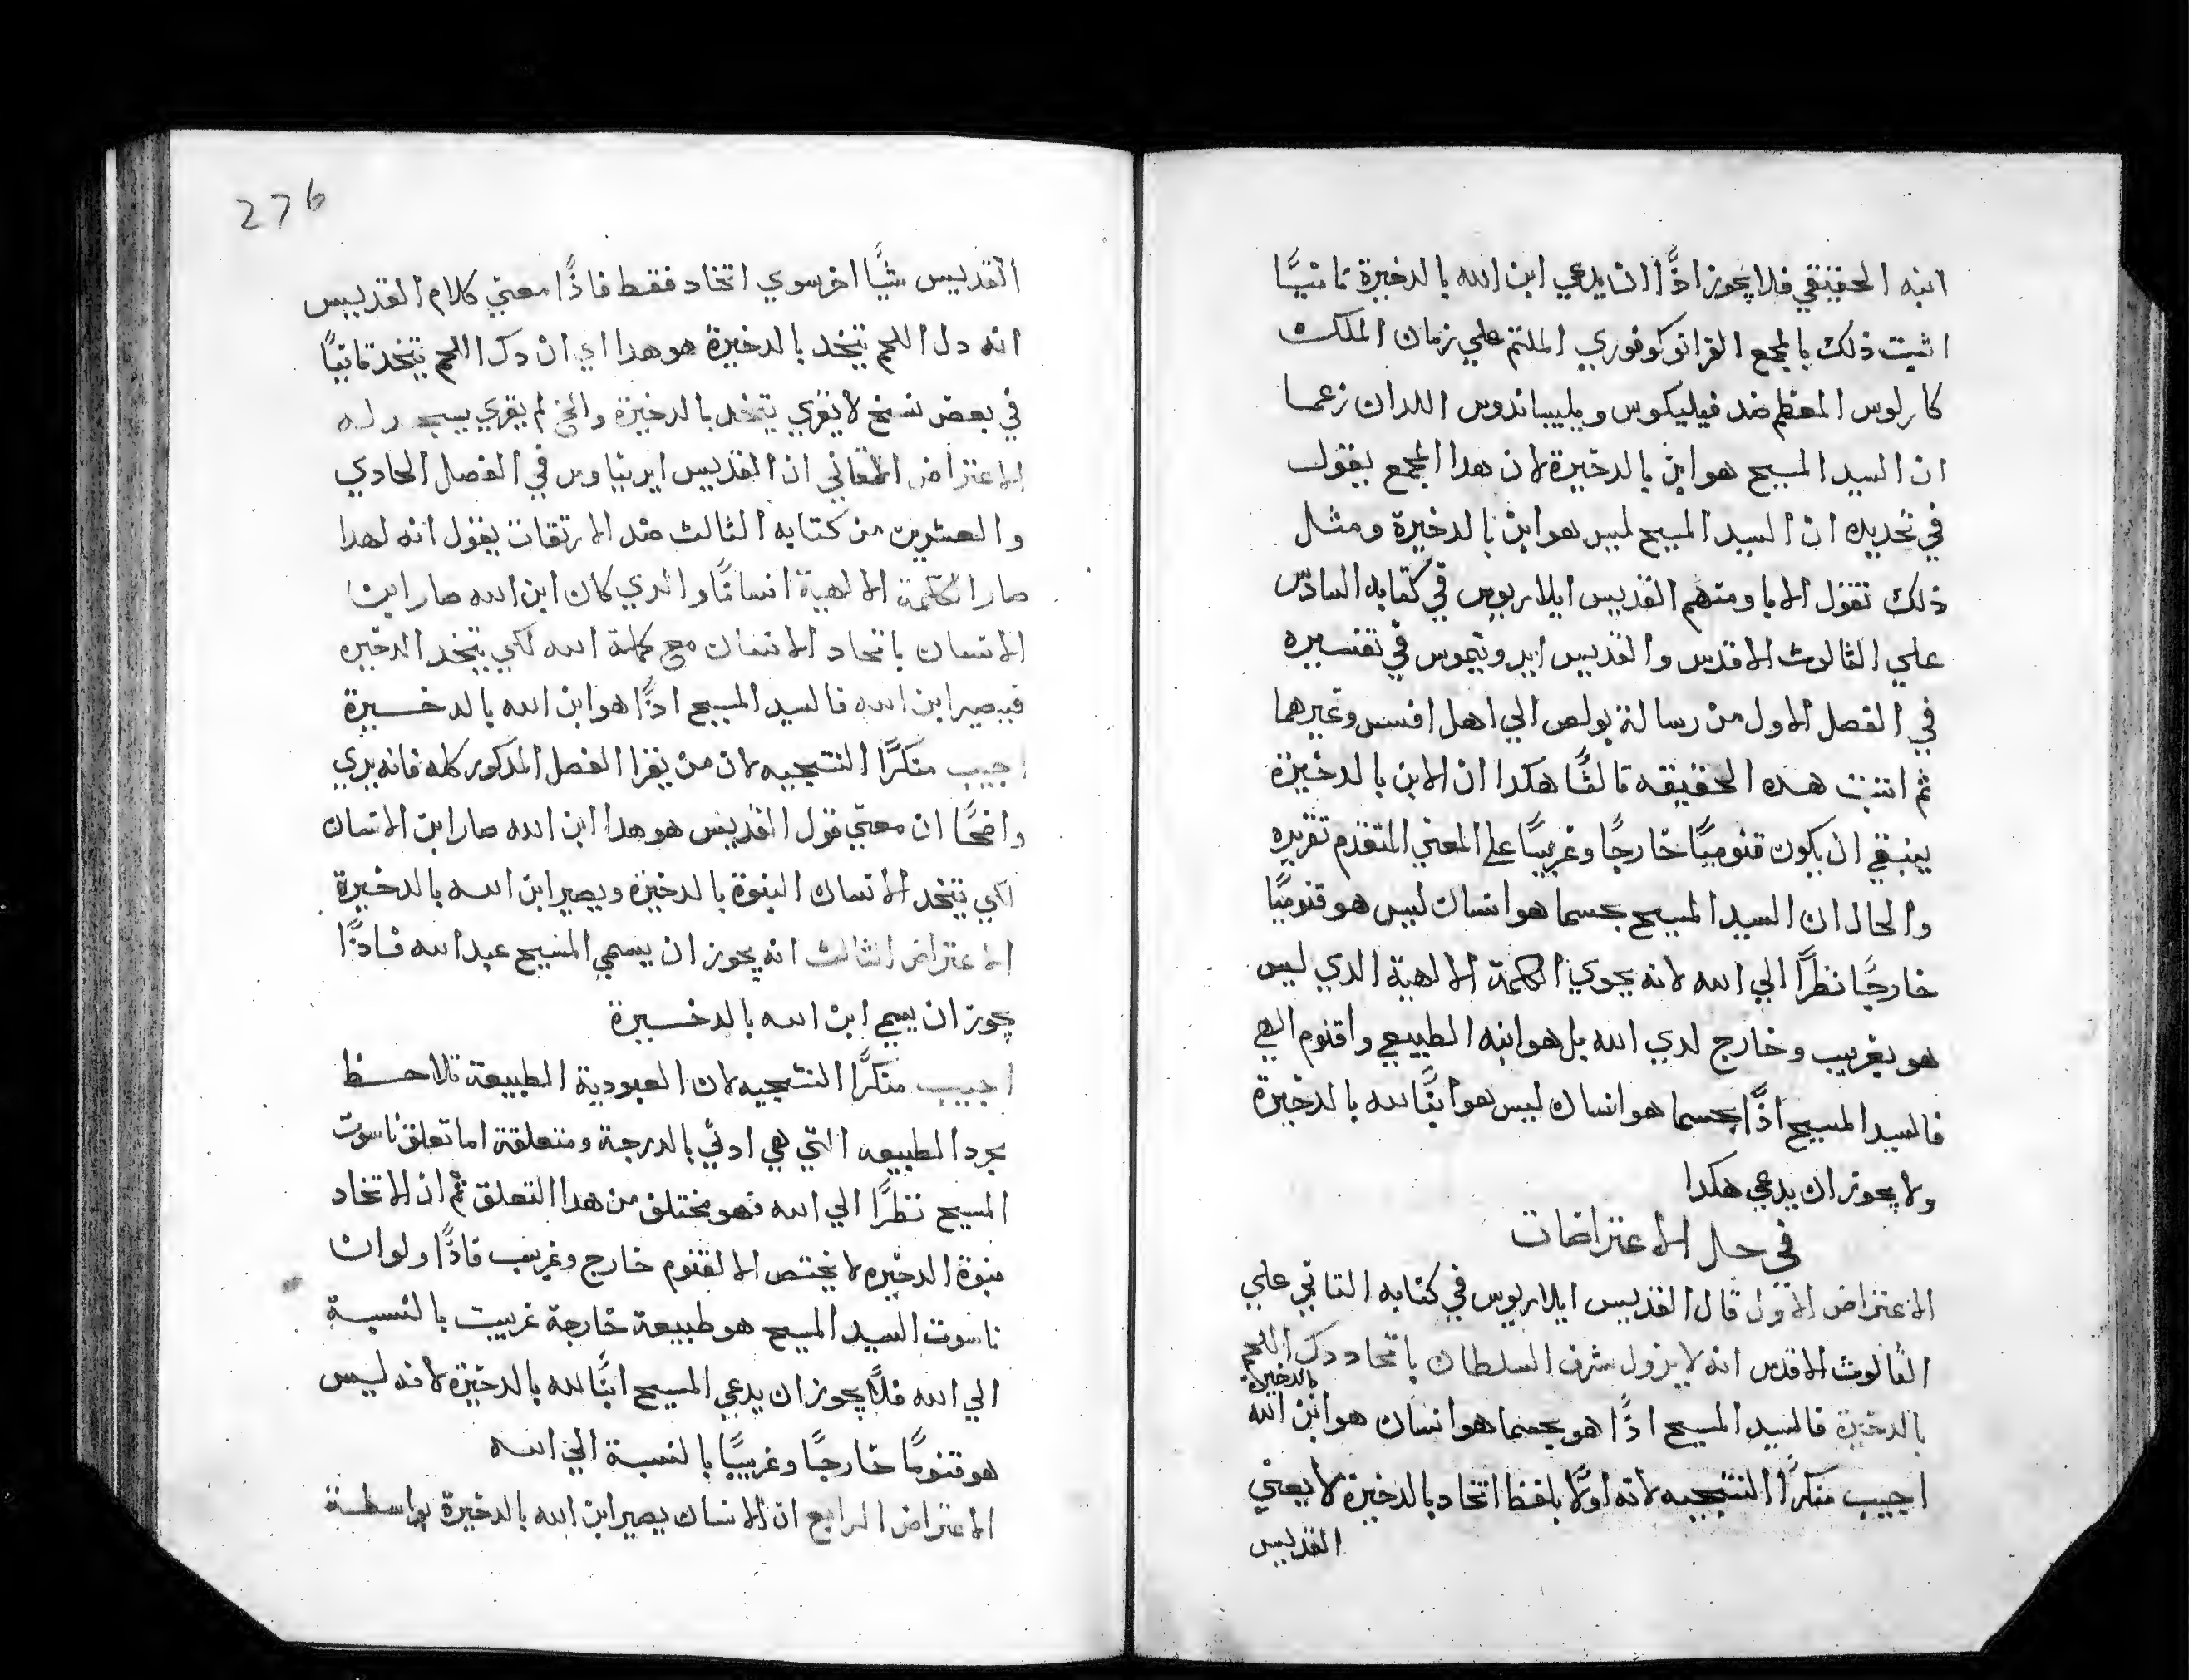 ابنه الحقيقي فلا يجوز اذًا ان يدعي ابن الله بالدخيرة ثانيًا
اثبت ذلك بالمجمع الفرانوكوفوري الملتم علي زمان الملك
كارلوس المعظم ضد فيليكوس ويليباندوس اللدان زعما
ان السيد المسيح هو ابن بالدخيرة لان هدا المجمع يقول
في تحديده ان السيد المسيح ليس هو ابن بالدخيرة ومثل
ذلك تقول الابا ومنهم القديس ايلاريوس في كتابه السادس
علي الثالوث الاقدس والقديس ايرونيموس في تفسيره
في الفصل الاول من رسالة بولص الي اهل افسس وغيرهما
ثم اثبت هده الحقيقه ثالثًا هكدا ان الابن بالدخيرة
ينبغي ان يكون قنوميًا خارجًا وغريبًا علي المعني المتقدم تقريره
والحال ان السيد المسيح بحسما هو انسان ليس هو قنوميًا
خارجًا نظرًا الي الله لانه يحوي الكلمة الالهية الدي ليس
هو بغريب وخارج لدي الله بل هو ابنه الطبيعي واقنوم الهي
فالسيد المسيح اذًا بحسما هو انسان ليس هو ابنًا لله بالدخيرة
ولا يجوز ان يدعي هكدا
في حل الاعتراضات
الاعتراض الاول قال القديس ايلاريوس في كتابه الثاني علي
الثالوث الاقدس انه لا يزول شرف السلطان باتحاد دك اللحم
بالدخيرة
بالدخيرة فالسيد المسيح اذًا هو بحسما هو انسان هو ابن الله
اجيب منكرًا النتيجيه لانه اولًا بلفظ اتخاد بالدخيرة لا يعني
القديس
276
القديس شيًا اخر سوي اتخاد فقط فاذًا معني كلام القديس
انه دل اللحم يتخد بالدخيرة هو هدا اي ان دك اللحم يتخد ثانيًا
في بعض نسخ لا يقري يتخد بالدخيرة والخ لم يقري يسجد له
الاعتراض الثاني ان القديس ايرنياوس في الفصل الحادي
والعشرين من كتابه الثالث ضد الارتقات يقول انه لهدا
صار الكلمة الالهية انسانًا والدي كان ابن الله صار ابن
الانسان باتحاد الانسان مع كلمة الله لكي يتخد الدخيره
فيصير ابن الله فالسيد المسيح اذًا هو ابن الله بالدخيرة
اجيب منكرًا النتيجيه لان من يقرا الفصل المدكور كله فانه يري
واضحًا ان معني قول القديس هو هدا ابن الله صار ابن الانسان
لكي يتخد الانسان البنوة بالدخيرة ويصير ابن الله بالدخيرة
الاعتراض الثالث انه يجوز ان يسمي المسيح عبد الله فاذًا
يجوز ان يسمي ابن الله بالدخيرة
اجيب منكرًا النتيجيه لان العبودية الطبيعة تلاحظ
مجرد الطبيعه التي هي ادني بالدرجة ومتعلقة اما تعلق ناسوت
المسيح نظرًا الي الله فهو مختلف من هدا التعلق ثم ان الاتخاد
بنوة الدخيره لا يختص الا لقنوم خارج وغريب فاذًا ولو ان
ناسوت السيد المسيح هو طبيعة خارجة غريبت بالنسبة
الي الله فلا يجوز ان يدعي المسيح ابنًا لله بالدخيرة لانه ليس
هو قنومًا خارجًا وغريبًا بالنسبة الي الله
الاعتراض الرابع ان الانسان يصير ابن الله بالدخيرة بواسطة